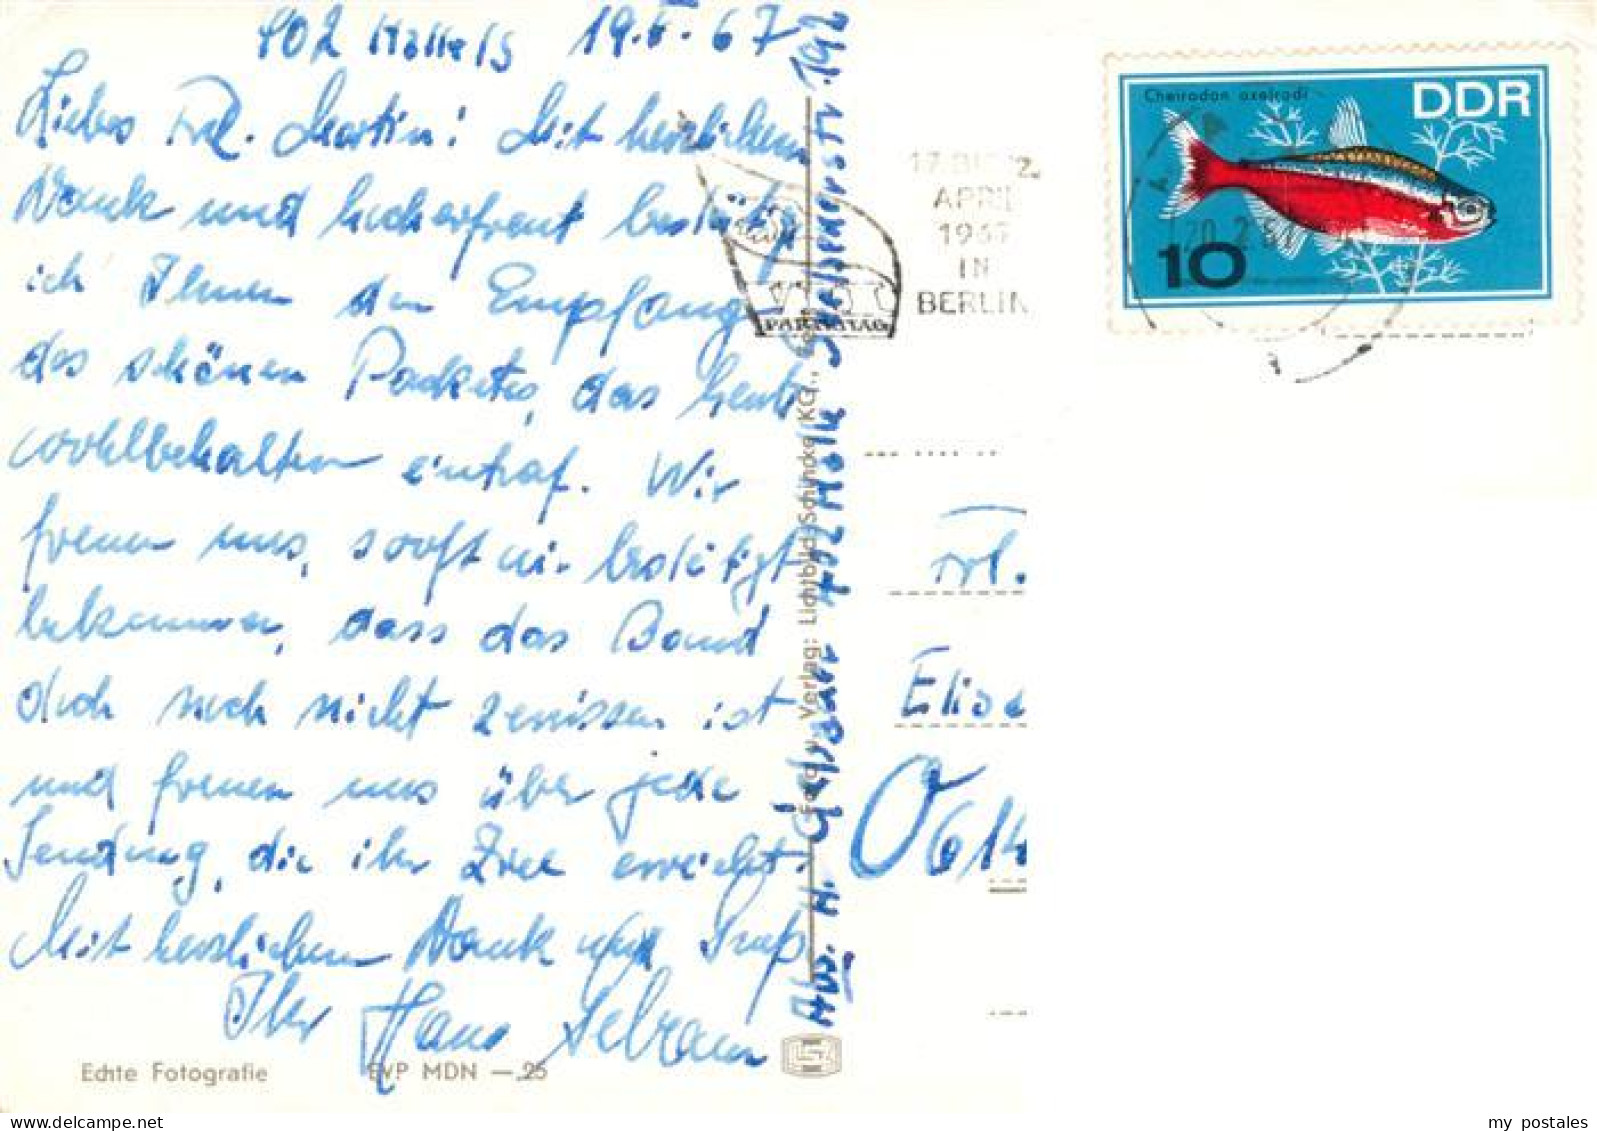 402 Halle/S 19.II.67
Liebes Frl. Martin! Mit herzlichem
Dank und hocherfreut bestätige
ich Ihnen den Empfang
des schönen Paketes, das heute
wohlbehalten eintraf. Wir
freuen uns, sooft wir bestätigt
bekommen, dass das Band
doch noch nicht zerrissen ist
und freuen uns über jede
Sendung, die ihr Ziel erreicht.
Mit herzlichem Dank und Gruß
Ihr Hans
Echte Fotografie EVP MDN —,25
Foto u. Verlag: Lichtbild Schincke KG.,
Abs. H. 402 Halle
17. BIS 22.
APRIL
1967
IN
BERLIN
VII
PARTEITAG
Cheirodon axelrodi
DDR
10
Frl.
Elise
O 614
my postales